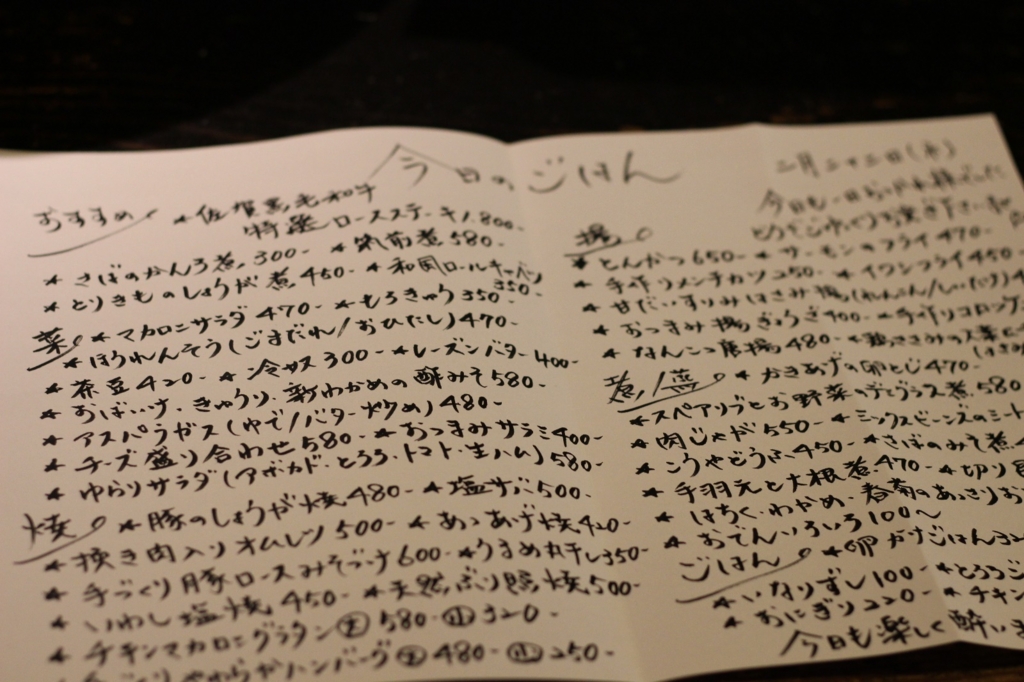 今日のごはん
おすすめ * 佐賀黒毛和牛
特選 ロースステーキ 1.800-
* さばのかんろ煮 300- * 筑前煮 580-
* とりきものしょうが煮 450- * 和風ロールキャベツ 550-
菜 * マカロニサラダ 470- * もろきゅう 350-
* ほうれんそう(ごまだれ/おひたし)470-
* 茶豆 420- * 冷やっこ 300- * レーズンバター 400-
* おばいけ・きゅうり・新わかめの酢みそ 580-
* アスパラガス(ゆで/バター炒め)480-
* チーズ盛り合わせ 580- * おつまみサラミ 400-
* ゆらりサラダ(アボカド・とろろ・トマト・生ハム)580-
焼 * 豚のしょうが焼 480- * 塩サバ 500-
* 挽き肉入りオムレツ 500- * あつあげ焼 420-
* 手づくり豚ロースみそづけ 600- * うるめ丸干し 350-
* いわし塩焼 450- * 天然ぶり照焼 500-
* チキンマカロニグラタン 大 580- 小 320-
やわらかハンバーグ 大 480- 小 250-
二月二十二日(木)
今日も一日おつかれ様でした
揚
* とんかつ 650- * サーモンのフライ 470-
* 手作りメンチカツ 250- * イワシフライ 450-
* 甘だいすりみはさみ揚(れんこん/しいたけ)
* おつまみ揚ぎょうざ 400- * 手作りコロッケ
* なんこつ唐揚 480- * 鶏ささみの
煮/蒸 * かきあげの卵とじ 470-
* スペアリブとお野菜のデミグラス煮 580
* 肉じゃが 550- * ミックスビーンズのミート
* こうやどうふ 450- * さばのみそ煮
* 手羽元と大根煮 470- * 切り
* はちく・わかめ・春菊のあっさりお
* おでんいろいろ 100~
ごはん * 卵かけごはん 32
* いなりずし 100- * とろろご
* おにぎり 220- * チキン
今日も楽しく酔いま